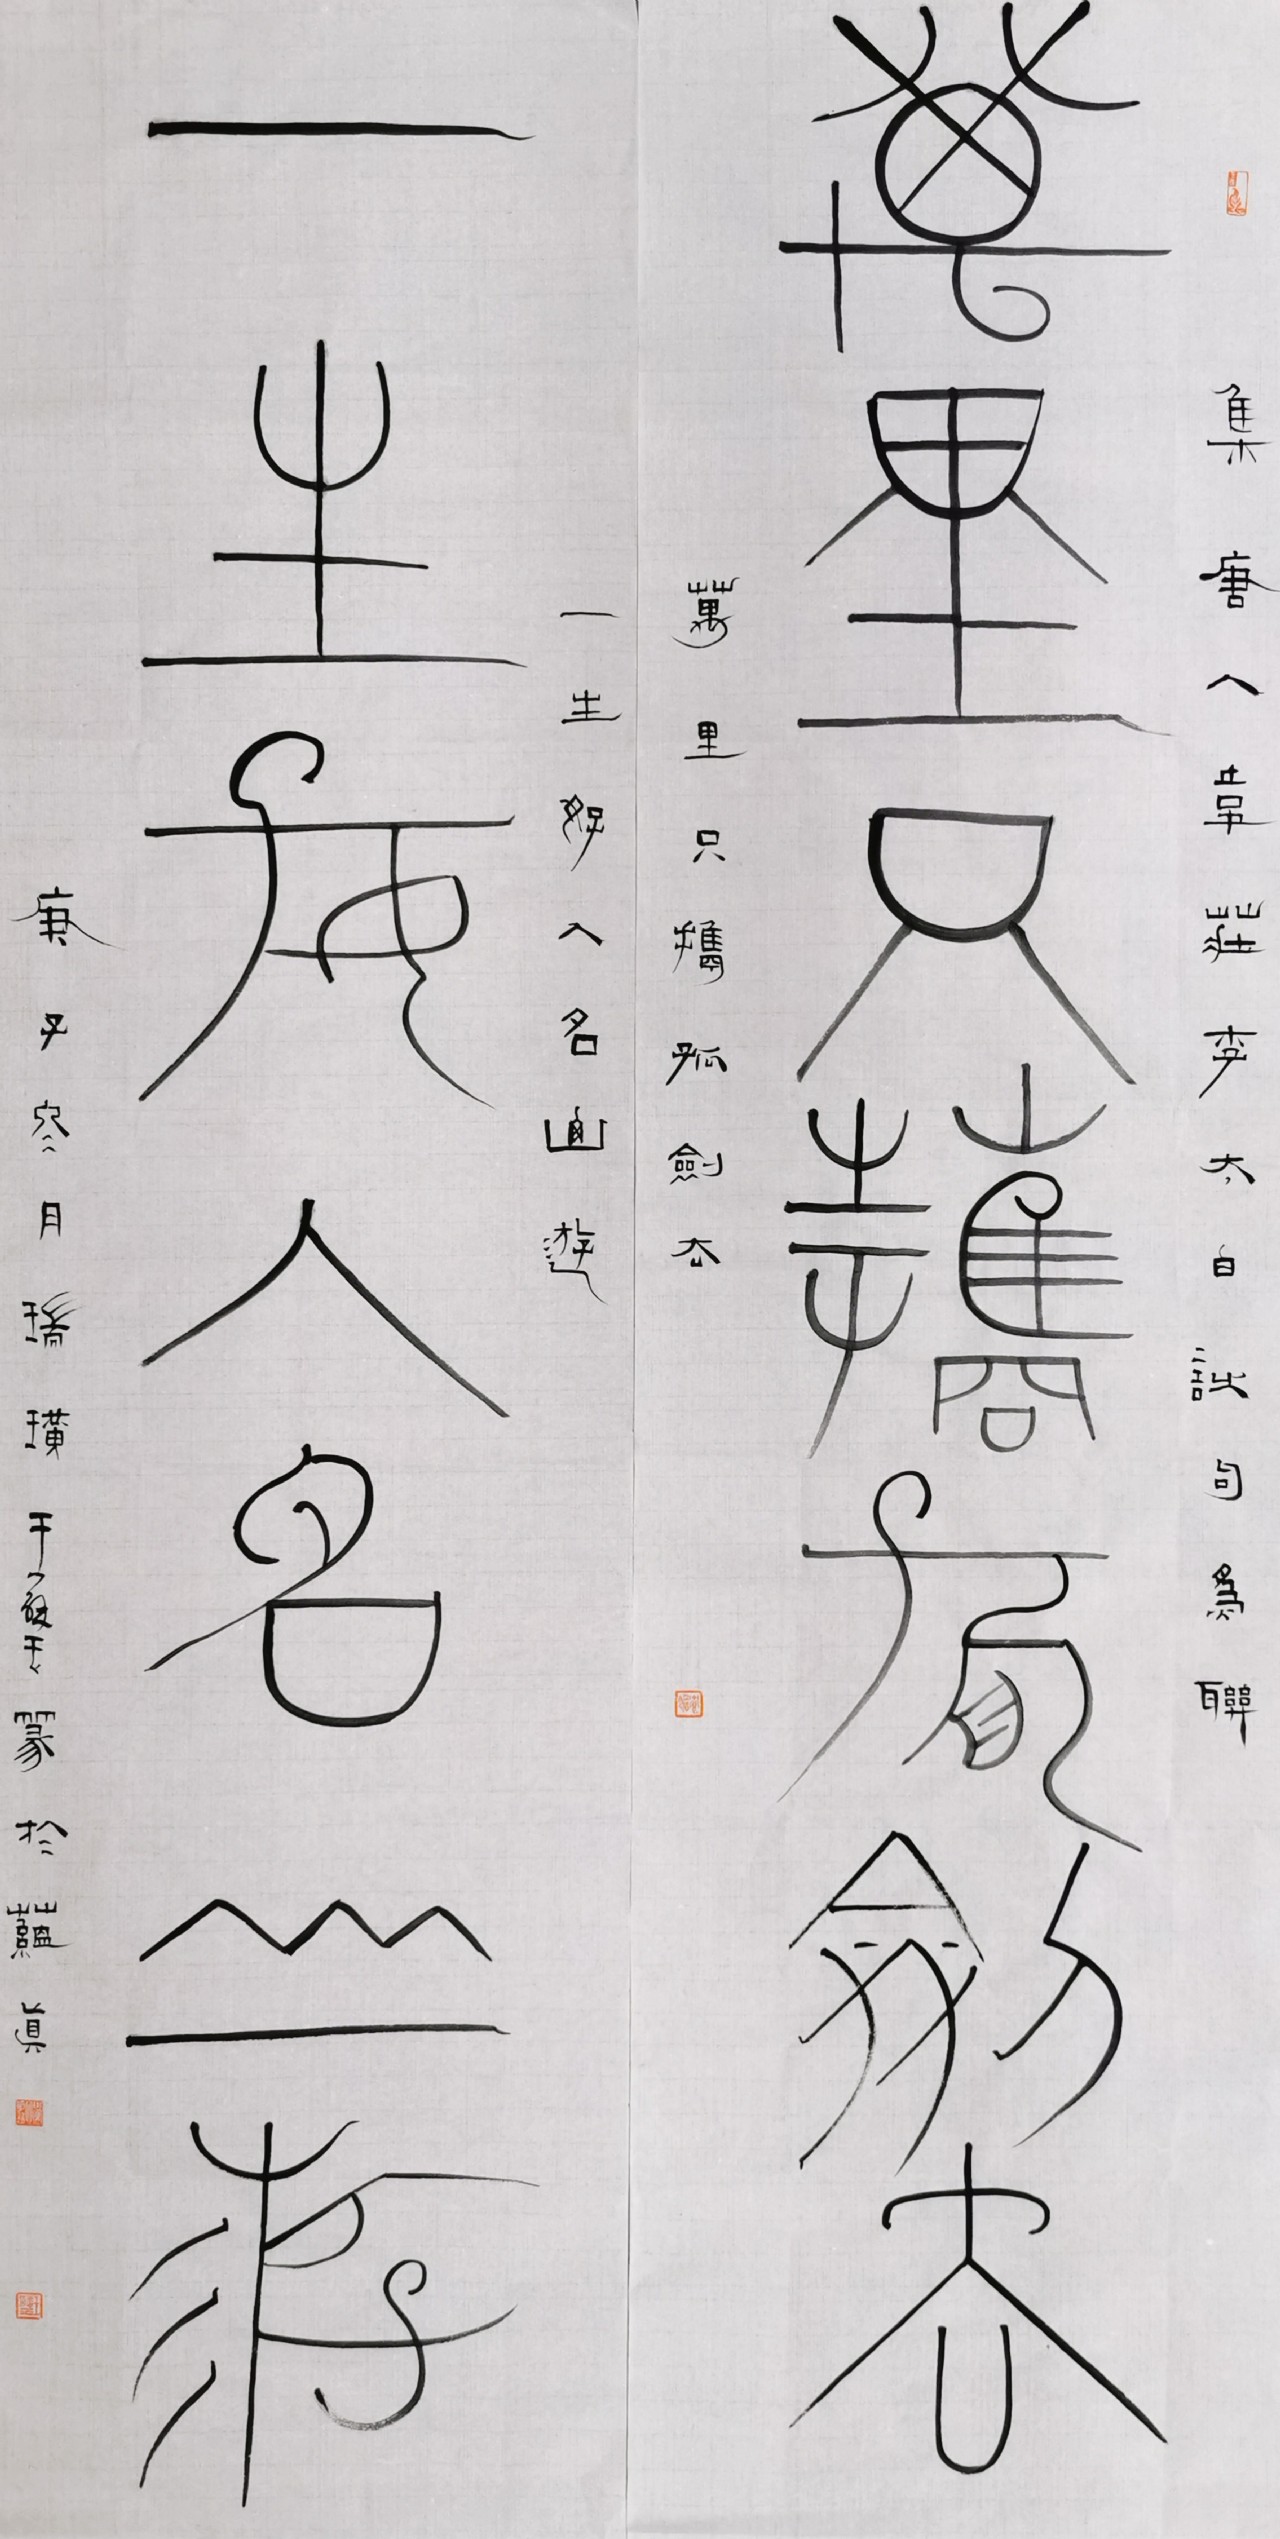 集唐人韋莊李太白詩句為聯
萬里只攜孤劍去
萬里只攜孤劍去
一生好入名山遊
一生好入名山遊
庚子冬月瑀璜
篆於蘊真